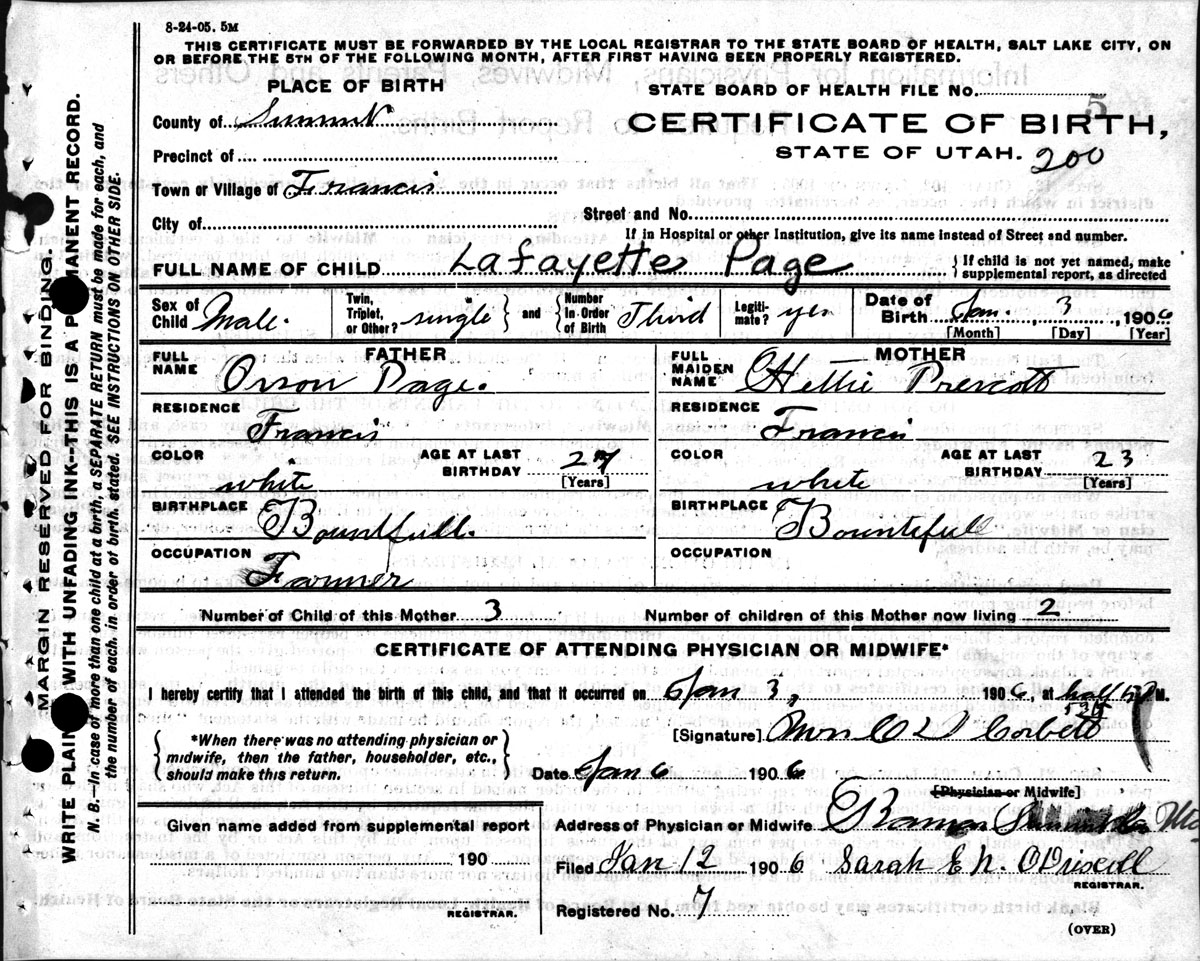 8-24-05. 5M
THIS CERTIFICATE MUST BE FORWARDED BY THE LOCAL REGISTRAR TO THE STATE BOARD OF HEALTH, SALT LAKE CITY, ON
OR BEFORE THE 5TH OF THE FOLLOWING MONTH, AFTER FIRST HAVING BEEN PROPERLY REGISTERED.
PLACE OF BIRTH
STATE BOARD OF HEALTH FILE No. 5
County of Summit
CERTIFICATE OF BIRTH,
STATE OF UTAH. 200
Precinct of
Town or Village of Francis
City of
Street and No.
If in Hospital or other Institution, give its name instead of Street and number.
FULL NAME OF CHILD Lafayette Page
{ If child is not yet named, make
supplemental report, as directed
Sex of Child Male.
Twin, Triplet, or Other? single } and { Number In Order of Birth Third
Legiti-mate? yes
Date of Birth Jan. 3, 1906
[Month] [Day] [Year]
FATHER
FULL NAME Orson Page.
MOTHER
FULL MAIDEN NAME Hettie Prescott
RESIDENCE Francis
RESIDENCE Francis
COLOR white
AGE AT LAST BIRTHDAY 27 [Years]
COLOR white
AGE AT LAST BIRTHDAY 23 [Years]
BIRTHPLACE Bountfull.
BIRTHPLACE Bountifull
OCCUPATION Farmer
OCCUPATION
Number of Child of this Mother 3
Number of children of this Mother now living 2
CERTIFICATE OF ATTENDING PHYSICIAN OR MIDWIFE*
I hereby certify that I attended the birth of this child, and that it occurred on Jan 3, 1906, at half M.
{ *When there was no attending physician or
midwife, then the father, householder, etc.,
should make this return. }
[Signature] Corbett
Date Jan 6 1906
[Physician or Midwife]
Given name added from supplemental report
190
REGISTRAR.
Address of Physician or Midwife
Filed Jan 12 1906 Sarah E N. O'Driscill
REGISTRAR.
Registered No. 7
(OVER)
MARGIN RESERVED FOR BINDING.
WRITE PLAINLY WITH UNFADING INK--THIS IS A PERMANENT RECORD.
N. B.--In case of more than one child at a birth, a SEPARATE RETURN must be made for each, and
the number of each, in order of birth, stated. SEE INSTRUCTIONS ON OTHER SIDE.